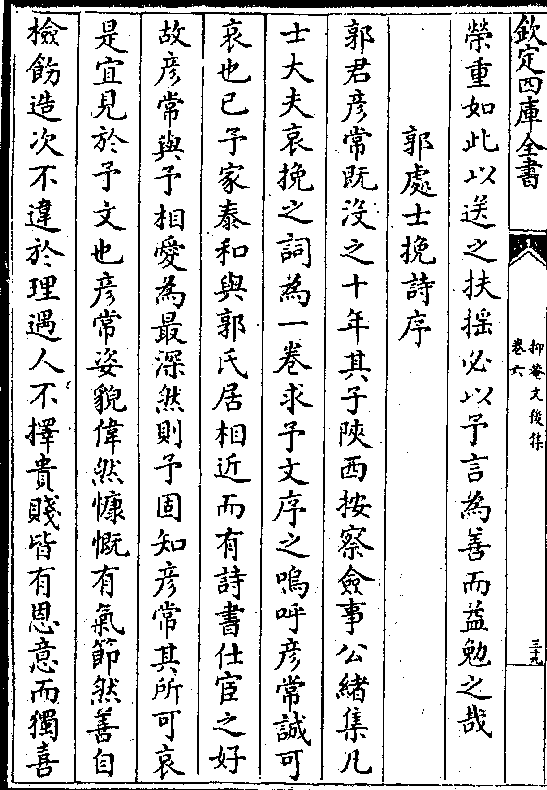 欽定四庫全書
抑菴文後集
卷六
三十九
榮重如此以送之扶揺必以予言為善而益勉之哉
郭處士挽詩序
郭君彦常既没之十年其子陜西按察僉事公緒集凡
士大夫哀挽之詞為一卷求予文序之嗚呼彦常誠可
哀也已予家泰和與郭氏居相近而有詩書仕宦之好
故彦常與予相愛為最深然則予固知彦常其所可哀
是宜見於予文也彦常姿貌偉然慷慨有氣節然善自
檢飭造次不違於理遇人不擇貴賤皆有恩意而獨喜